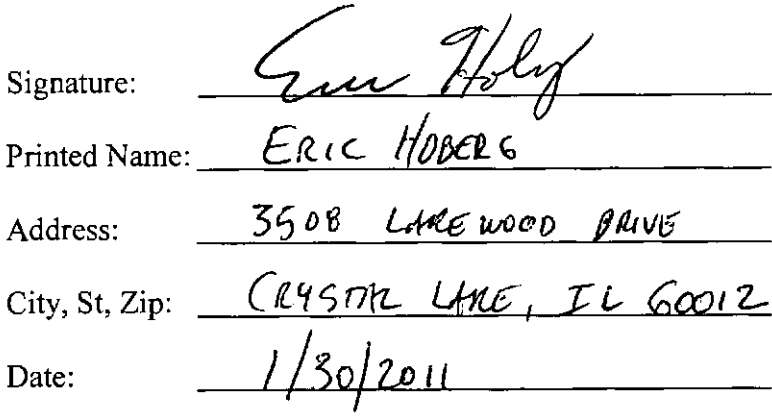 Signature: Eric Hoberg
Printed Name: ERIC HOBERG
Address: 3508 LAKEWOOD DRIVE
City, St, Zip: CRYSTAL LAKE, IL 60012
Date: 1/30/2011